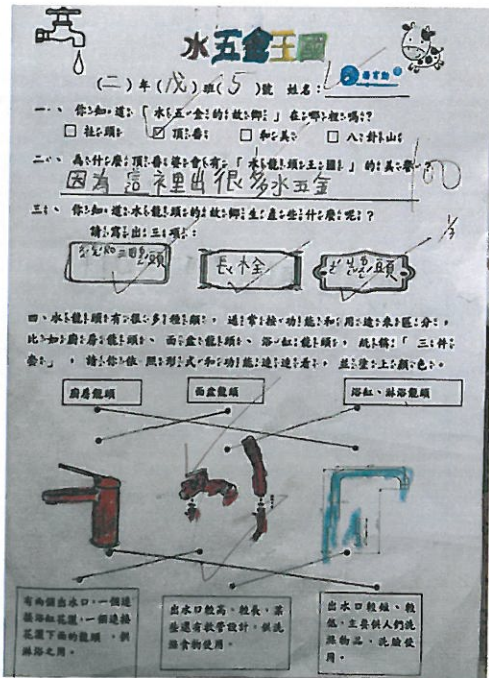 水五金王國
(二)年(戊)班(5)號 姓名:
一、你知道「水五金的故鄉」在哪裡嗎?
□社頭 ☑頂番 □和美 □八卦山
二、為什麼頂番婆會有「水龍頭王國」的美譽?
因為這裡出很多水五金
三、你知道水龍頭的故鄉生產些什麼呢?
請寫出三項:
長栓
四、水龍頭有很多種類,通常按功能和用途來區分,
比如廚房龍頭、面盆龍頭、浴缸龍頭,統稱「三件
套」,請你依照形式和功能連連看,並塗上顏色。
廚房龍頭 面盆龍頭 浴缸、淋浴龍頭
有兩個出水口,一個連
接浴缸花灑,一個連接
花灑下面的龍頭,供
淋浴之用。
出水口較高、較長,某
些還有軟管設計,供洗
滌食物使用。
出水口較短、較
低,主要供人們洗
滌物品、洗臉使
用。